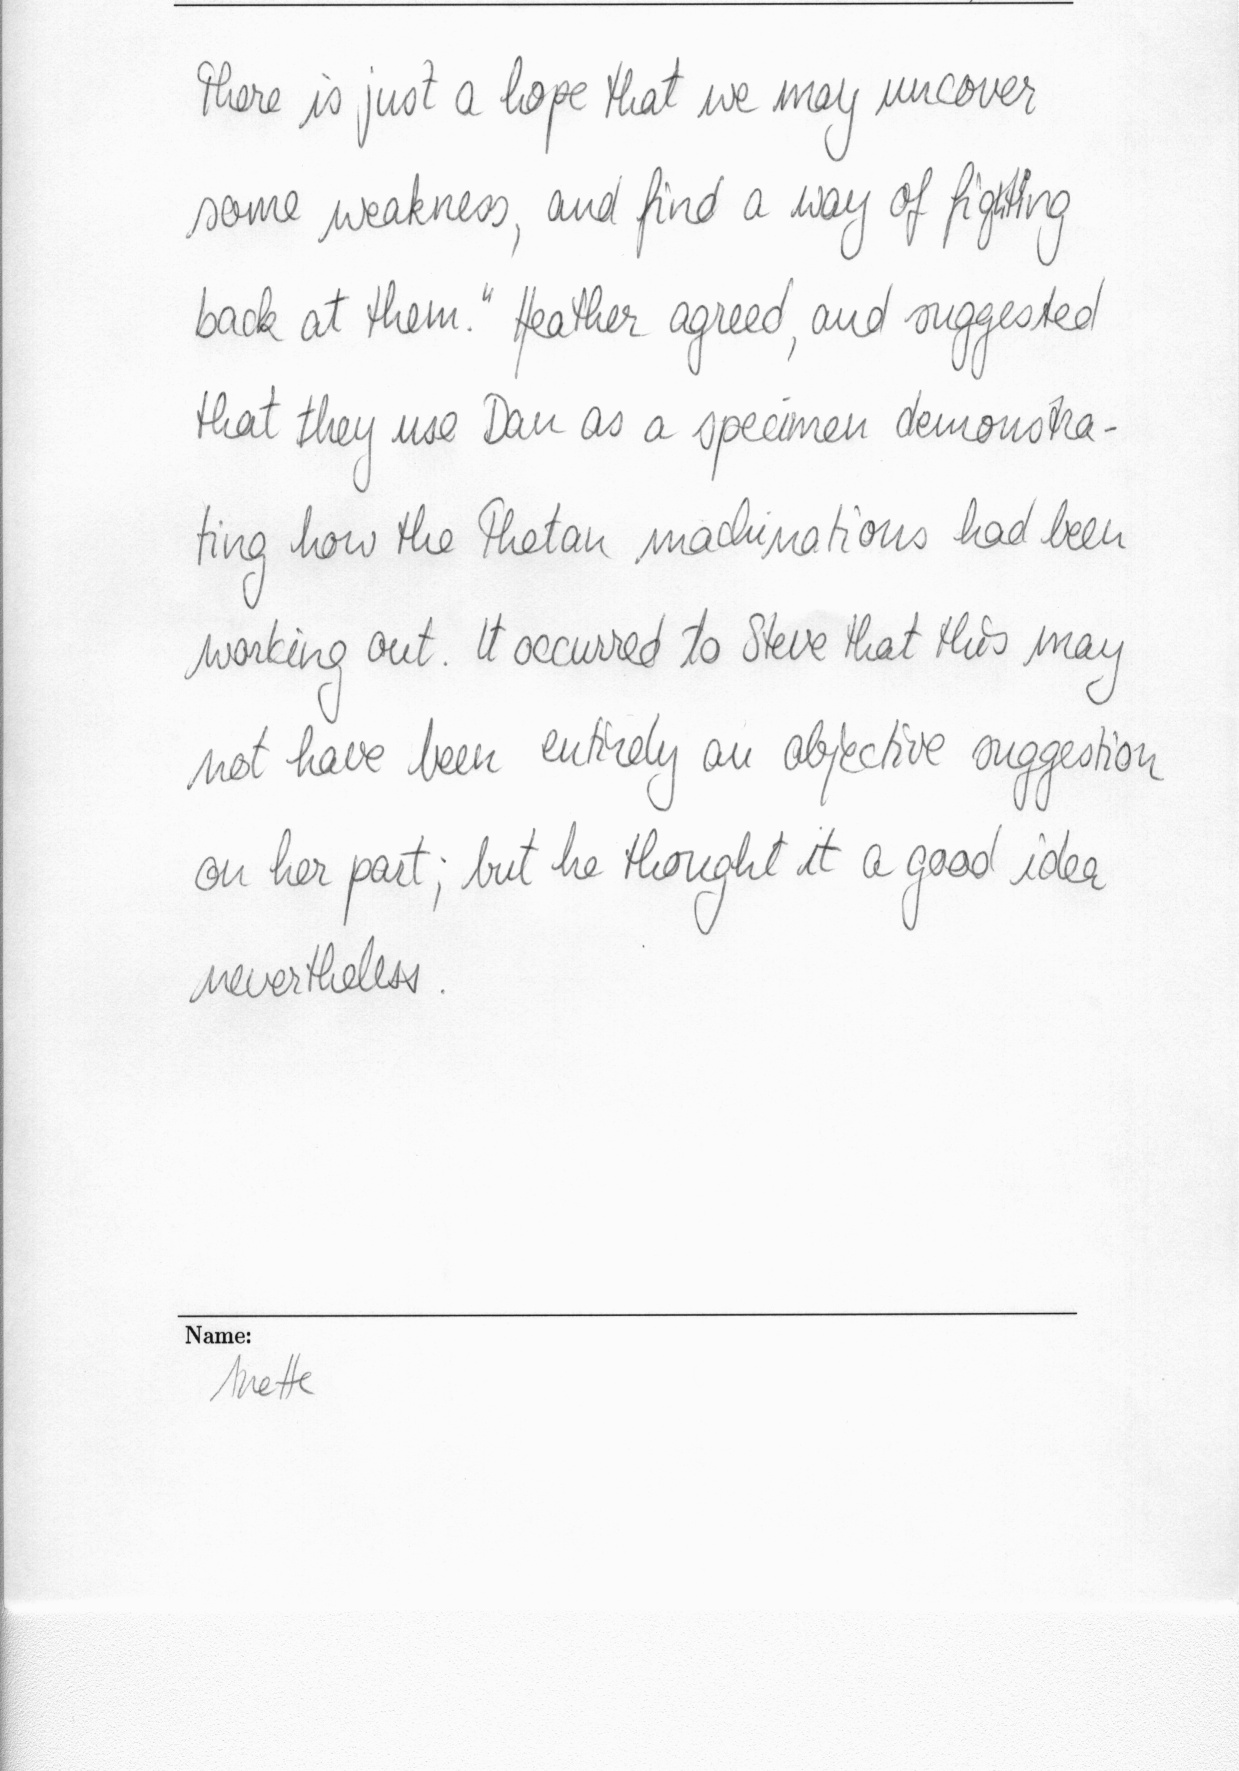 There is just a hope that we may uncover
some weakness, and find a way of fighting
back at them." Heather agreed, and suggested
that they use Dan as a specimen demonstra-
ting how the Thetan machinations had been
working out. It occurred to Steve that this may
not have been entirely an objective suggestion
on her part; but he thought it a good idea
nevertheless.
Name:
Anette